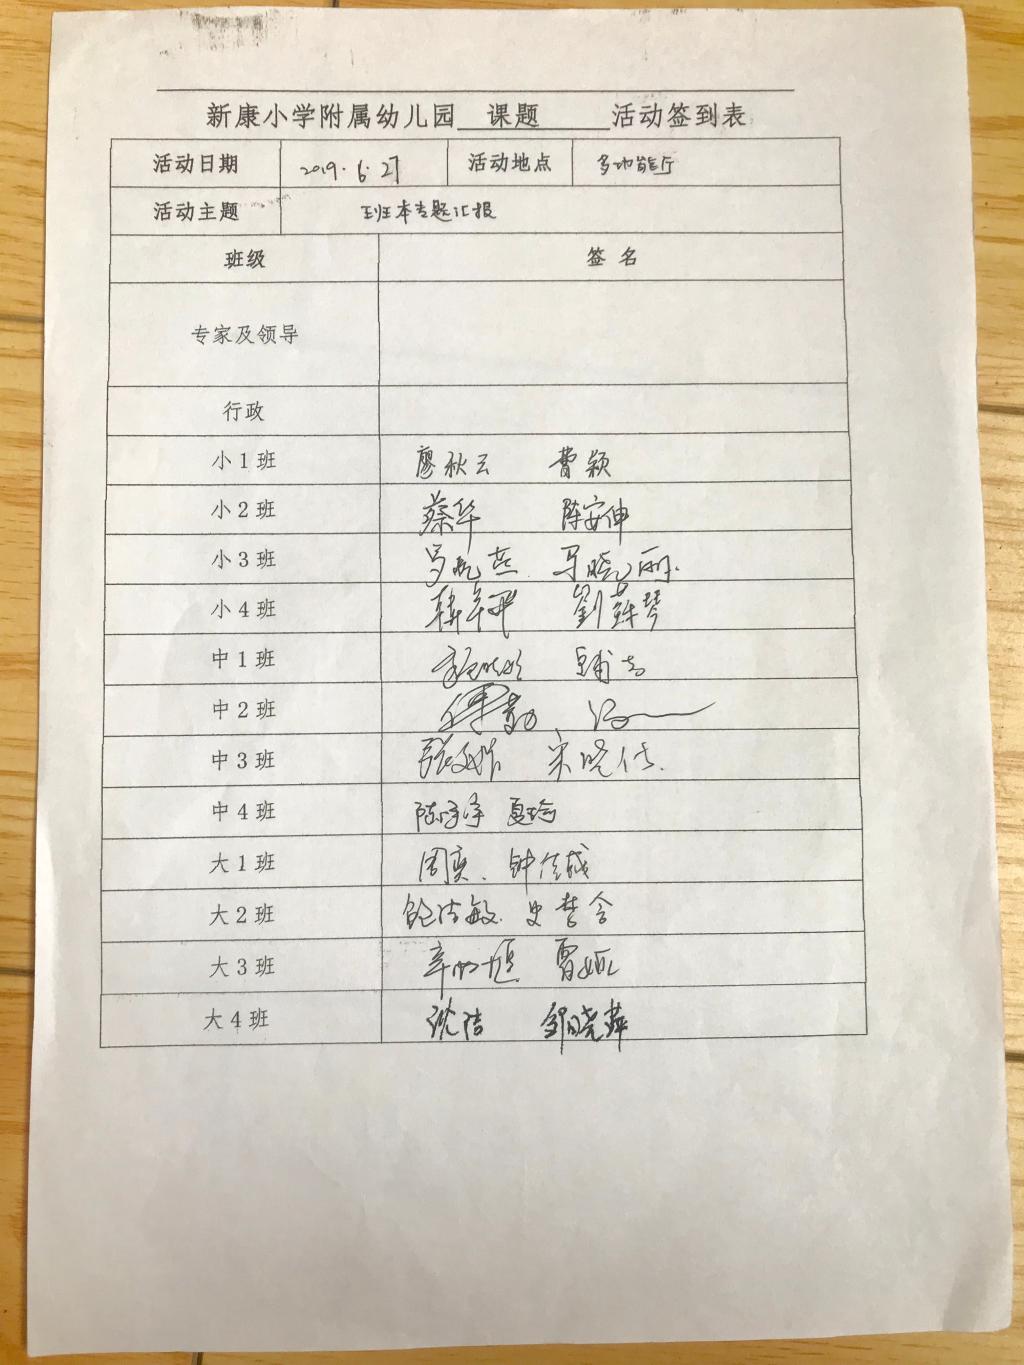 新康小学附属幼儿园 课题 活动签到表
活动日期 2019.6.27 活动地点 多功能厅
活动主题 班本专题汇报
班级 签名
专家及领导
行政
小1班 廖秋云 费颖
小2班 蔡华 陈安伸
小3班 马晓丽
小4班 劉舞琴
中1班
中2班
中3班 宋晓佳
中4班 陈 夏玲
大1班 周奕 钟佳成
大2班 鲍洁敏 史楚含
大3班 辛 曹娅
大4班 沈洁 邹晓萍